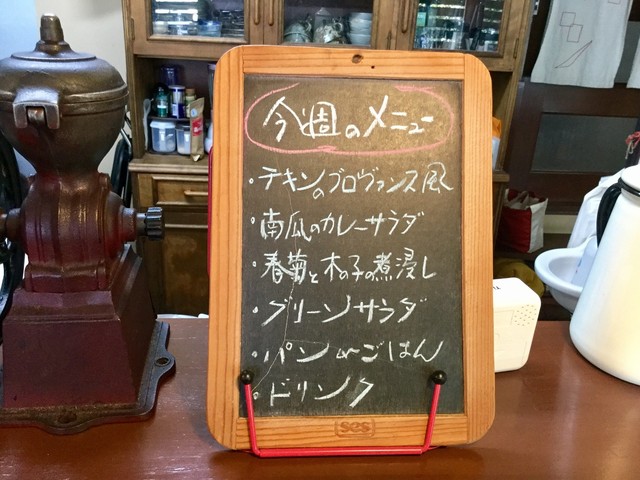 今週のメニュー
・チキンのプロヴァンス風
・南瓜のカレーサラダ
・春菊と木の子の煮浸し
・グリーンサラダ
・パン or ごはん
・ドリンク
scs